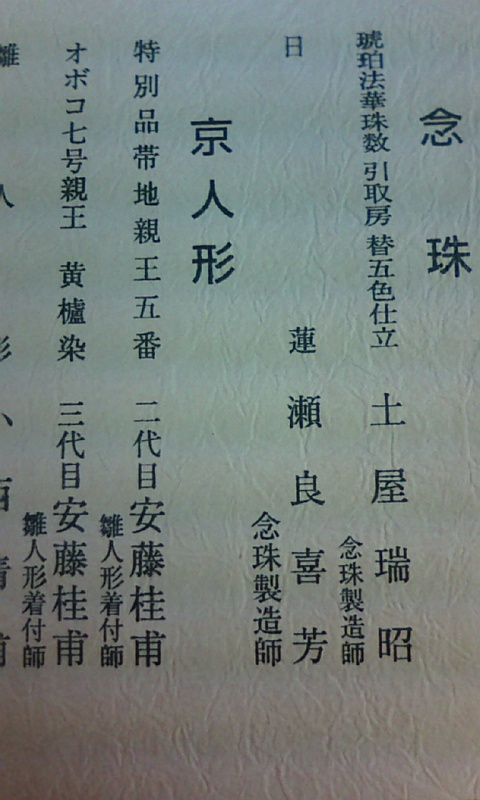 念珠
琥珀法華珠数 引取房 替五色仕立
念珠製造師
土屋瑞昭
日
蓮
念珠製造師
瀬良喜芳
京人形
特別品帯地親王五番
雛人形着付師
二代目安藤桂甫
オボコ七号親王 黄櫨染
雛人形着付師
三代目安藤桂甫
雛人形